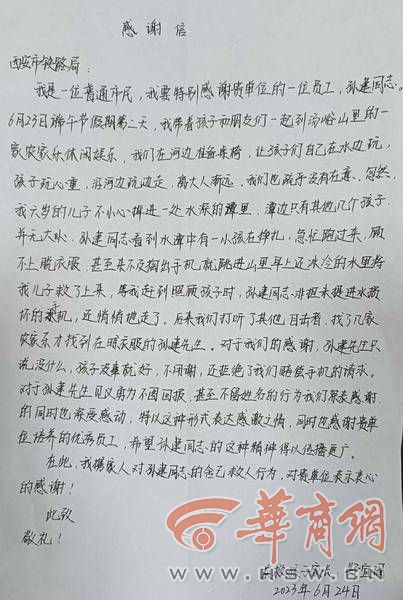 感谢信
西安市铁路局：
我是一位普通市民，我要特别感谢贵单位的一位员工，孙建同志。
6月23日端午节假期第二天，我带着孩子和朋友们一起到汤峪山里的一
家农家乐休闲娱乐，我们在河边准备桌椅，让孩子们自己在水边玩，
孩子玩心重，沿河边玩边走，离大人渐远，我们也疏于没有在意，忽然，
我六岁的儿子不小心掉进一处水深的潭里，潭边只有其他几个孩子，
并无大人。孙建同志看到水潭中有一小孩在挣扎，急忙跑过来，顾
不上脱衣服，甚至来不及掏出手机，就跳进山里早上还冰冷的水里将
我儿子救了上来，等我赶到照顾孩子时，孙建同志非但未提进水损
坏的手机，还悄悄地走了。后来我们打听了其他目击者，找了几家
农家乐才找到在晾衣服的孙建先生。对于我们的感谢，孙建先生只
说没什么，孩子没事就好，不用谢，还拒绝了我们赔偿手机的请求。
对于孙建先生见义勇为不图回报，甚至不留姓名的行为我们深表感谢
的同时也深受感动，特以这种形式表达感激之情，同时也感谢贵单
位培养的优秀员工，希望孙建同志的这种精神得以传播更广。
在此，我携家人对孙建同志的舍己救人行为，对贵单位表示衷心
的感谢！
此致
敬礼！
2023年6月24日
华商网
www.hsw.cn